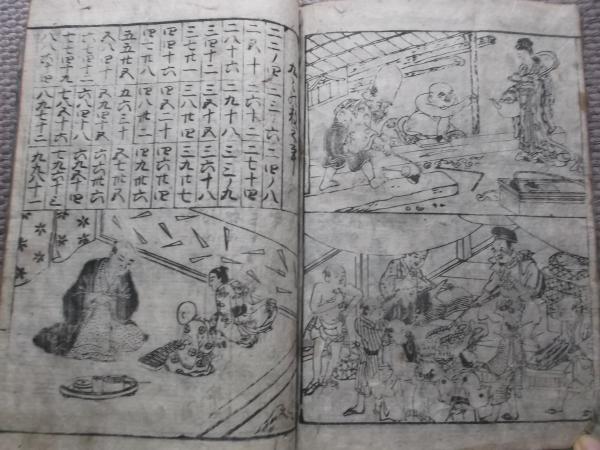 二二ノ四 二三ノ六 二四ノ八
二五十 二六十二 二七十四
二八十六 二九十八 三三ノ九
三四十二 三五十五 三六十八
三七廿一 三八廿四 三九廿七
四四十六 四五二十 四六廿四
四七廿八 四八卅二 四九卅六
五五廿五 五六三十 五七卅五
五八四十 五九四十五 六六卅六
六七四十二 六八四十八 六九五十四
七七四十九 七八五十六 七九六十三
八八六十四 八九七十二 九九八十一